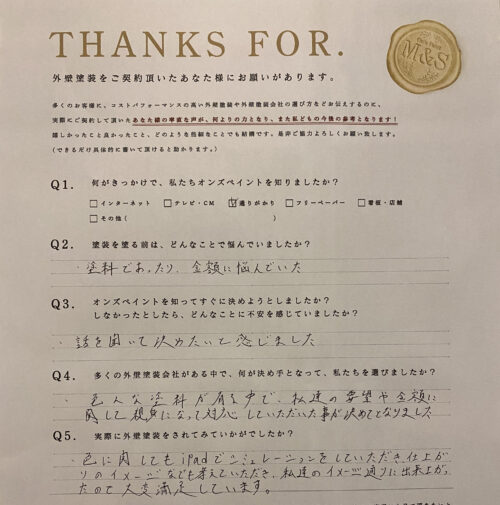 THANKS FOR.
M&S
外壁塗装をご契約頂いたあなた様にお願いがあります。
多くのお客様に、コストパフォーマンスの高い外壁塗装や外壁塗装会社の選び方などお伝えするのに、
実際にご契約して頂いたあなた様の率直な声が、何よりの力となり、また私どもの今後の参考となります！
嬉しかったこと良かったこと、どのような些細なことでも結構です。是非ご協力よろしくお願い致します。
(できるだけ具体的に書いて頂けると助かります。)
Q1. 何がきっかけで、私たちオンズペイントを知りましたか？
□インターネット □テレビ・CM ☑通りがかり □フリーペーパー □看板・店舗
□その他( )
Q2. 塗装を塗る前は、どんなことで悩んでいましたか？
・塗料であったり、金額に悩んでいた
Q3. オンズペイントを知ってすぐに決めようとしましたか？
しなかったとしたら、どんなことに不安を感じていましたか？
・話を聞いて決めたいて感じました
Q4. 多くの外壁塗装会社がある中で、何が決め手となって、私たちを選びましたか？
・色んな塗料が有る中で、私達の要望や金額に
関して親身になって対応していただいた事が決めてとなりました
Q5. 実際に外壁塗装をされてみていかがでしたか？
・色に関してもiPadでシュミレーションをしていただき、仕上が
りのイメージなども考えていただき、私達のイメージ通りに出来上がっ
たので大変満足しています。